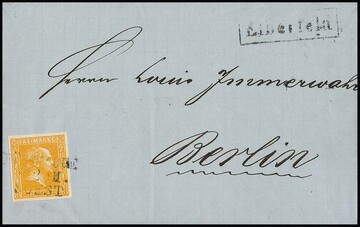 Elberfeld
Herrn Louis Immerwahr
Berlin
FREIMARKE